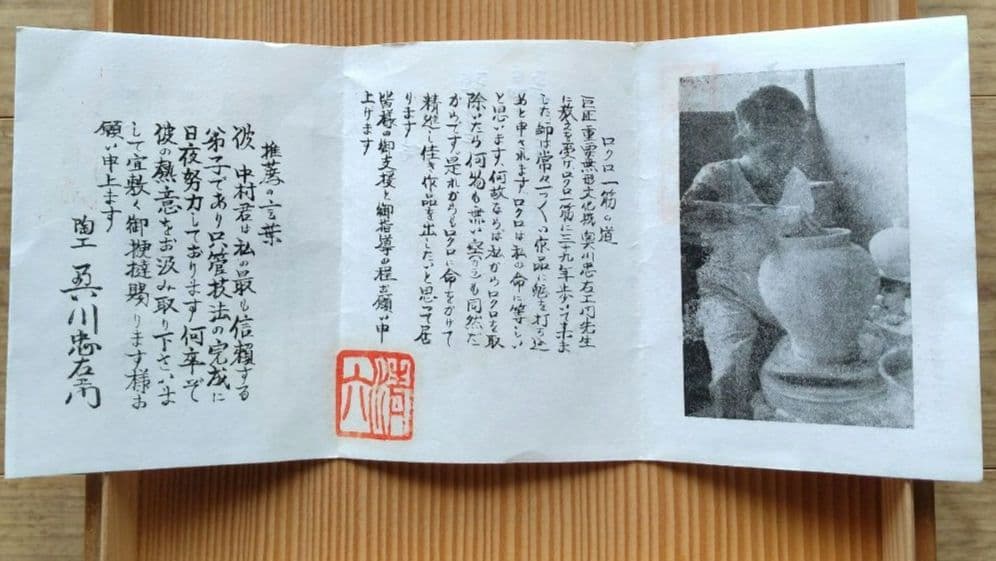 ロクロ一筋の道
巨匠重要無形文化財奥川忠右エ門先生
に教えを受けロクロ一筋に三十九年歩いて来ま
した。師は常々つくい作品に魂を打ち込
めと申されます。ロクロは私の命に等しい
と思います。何故ならば私からロクロを取
除いたら何物も無い空らも同然だ
からです。是れからもロクロに命をかけて
精進し佳き作品を出したいと思って居
ります
皆様の御支援と御指導の程お願い申
上げます
清六
推薦の言葉
彼 中村君は私の最も信頼する
弟子であり只管技法の完成に
日夜努力しております何卒ぞ
彼の熱意をお汲み取り下さいま
して宜敷く御鞭撻賜ります様お
願い申上ます
陶工 奥川忠右衛門